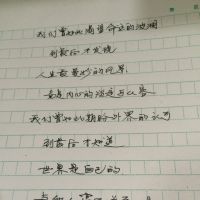 我们曾如此渴望命运的波澜
到最后才发现
人生最曼妙的风景
竟是内心的淡定与从容
我们曾如此期盼外界的认可
到最后才知道
世界是自己的
与他人